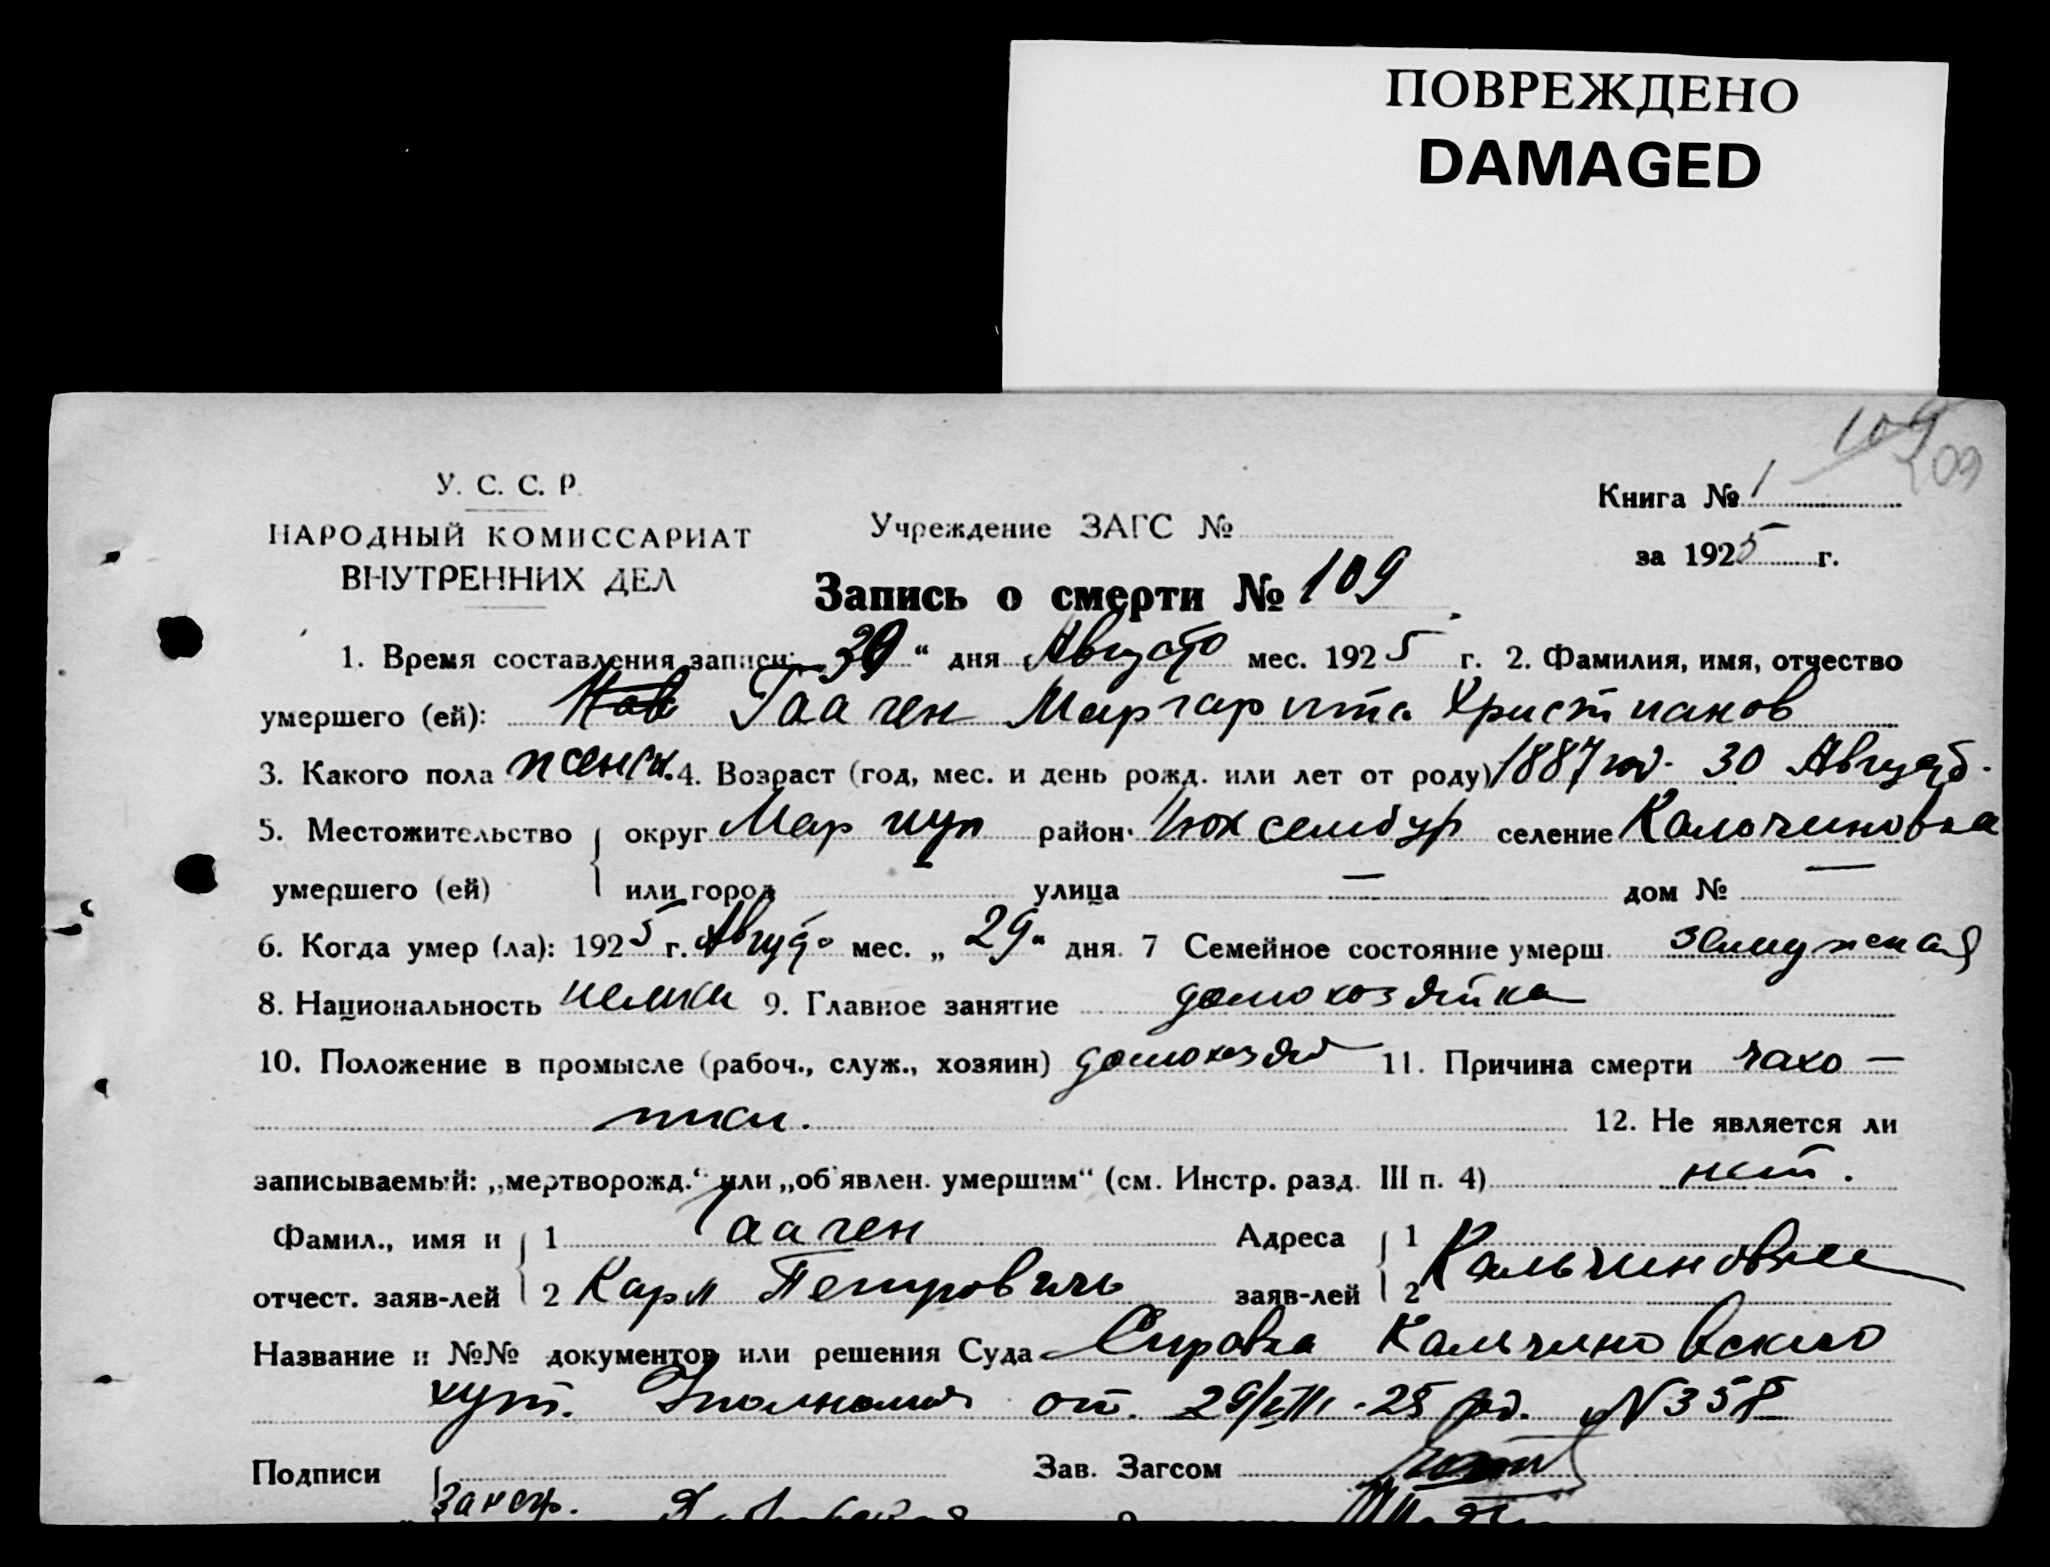 ПОВРЕЖДЕНО
DAMAGED
109
209
У. С. С. Р.
НАРОДНЫЙ КОМИССАРИАТ
ВНУТРЕННИХ ДЕЛ
Учреждение ЗАГС №
Книга № 1
за 1925 г.
Запись о смерти № 109
1. Время составления записи: „30“ дня Августа мес. 1925 г. 2. Фамилия, имя, отчество
умершего (ей): Гааген Маргарита Христианов
3. Какого пола женск. 4. Возраст (год, мес. и день рожд. или лет от роду) 1887 год. 30 Август.
5. Местожительство округ Мариуп район Люксембур селение Кальчиновка
умершего (ей) или город — улица — дом № —
6. Когда умер (ла): 1925 г. Августа мес. „29“ дня. 7 Семейное состояние умерш. замужная
8. Национальность немка 9. Главное занятие домохозяйка
10. Положение в промысле (рабоч., служ., хозяин) домохозяй 11. Причина смерти чахо—
тки. 12. Не является ли
записываемый: „мертворожд.“ или „об'явлен. умершим“ (см. Инстр. разд. III п. 4) нет.
Фамил., имя и 1 Гааген Адреса 1 Кальчиновка
отчест. заяв-лей 2 Карл Петровичь заяв-лей 2
Название и №№ документов или решения Суда Справка Кальчиновского
хут. от. 29/VIII-25 год. N 358
Подписи Зав. Загсом